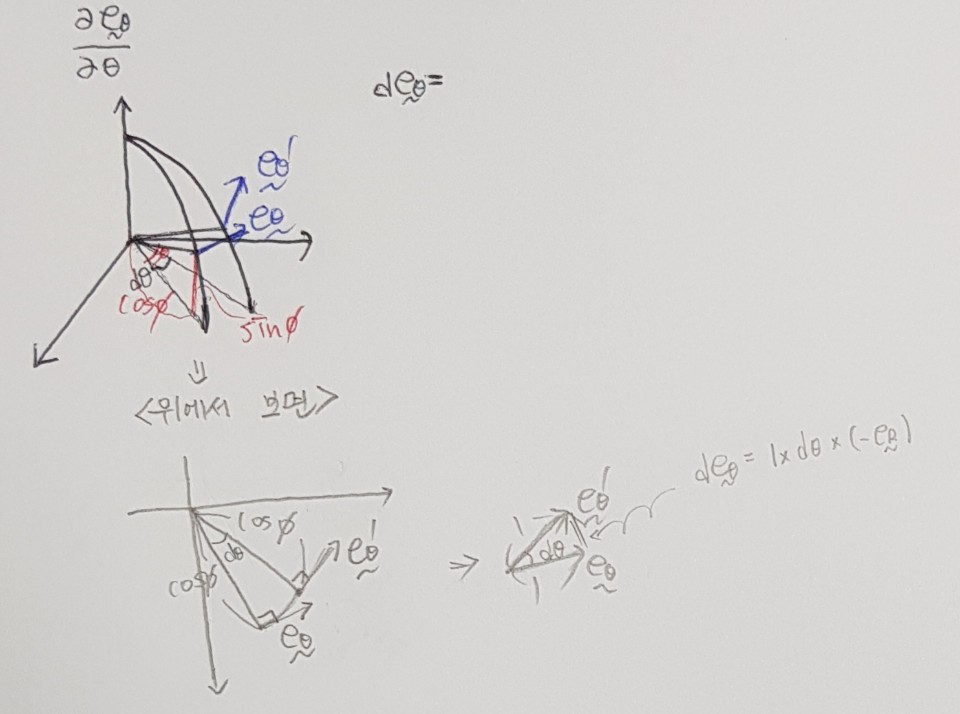 ∂e_θ/∂θ
de_θ=
e_θ'
e_θ
dθ
cosφ
sinφ
⇓
<위에서 보면>
cosφ
dθ
cosφ
e_θ'
e_θ
⇒
1
dθ
1
e_θ'
e_θ
de_θ = 1×dθ×(-e_R)